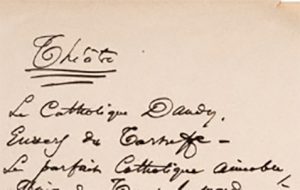 Théâtre
Le Catholique Dandy,
Envers du Tartuffe –
Le parfait Catholique aimable,